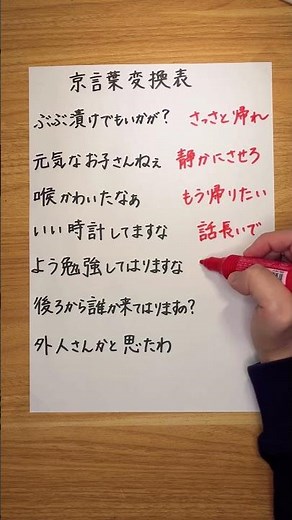 京言葉変換表
ぶぶ漬けでもいかが? さっさと帰れ
元気なお子さんねぇ 静かにさせろ
喉かわいたなぁ もう帰りたい
いい時計してますな 話長いで
よう勉強してはりますな
後ろから誰か来てはりますの?
外人さんかと思たわ